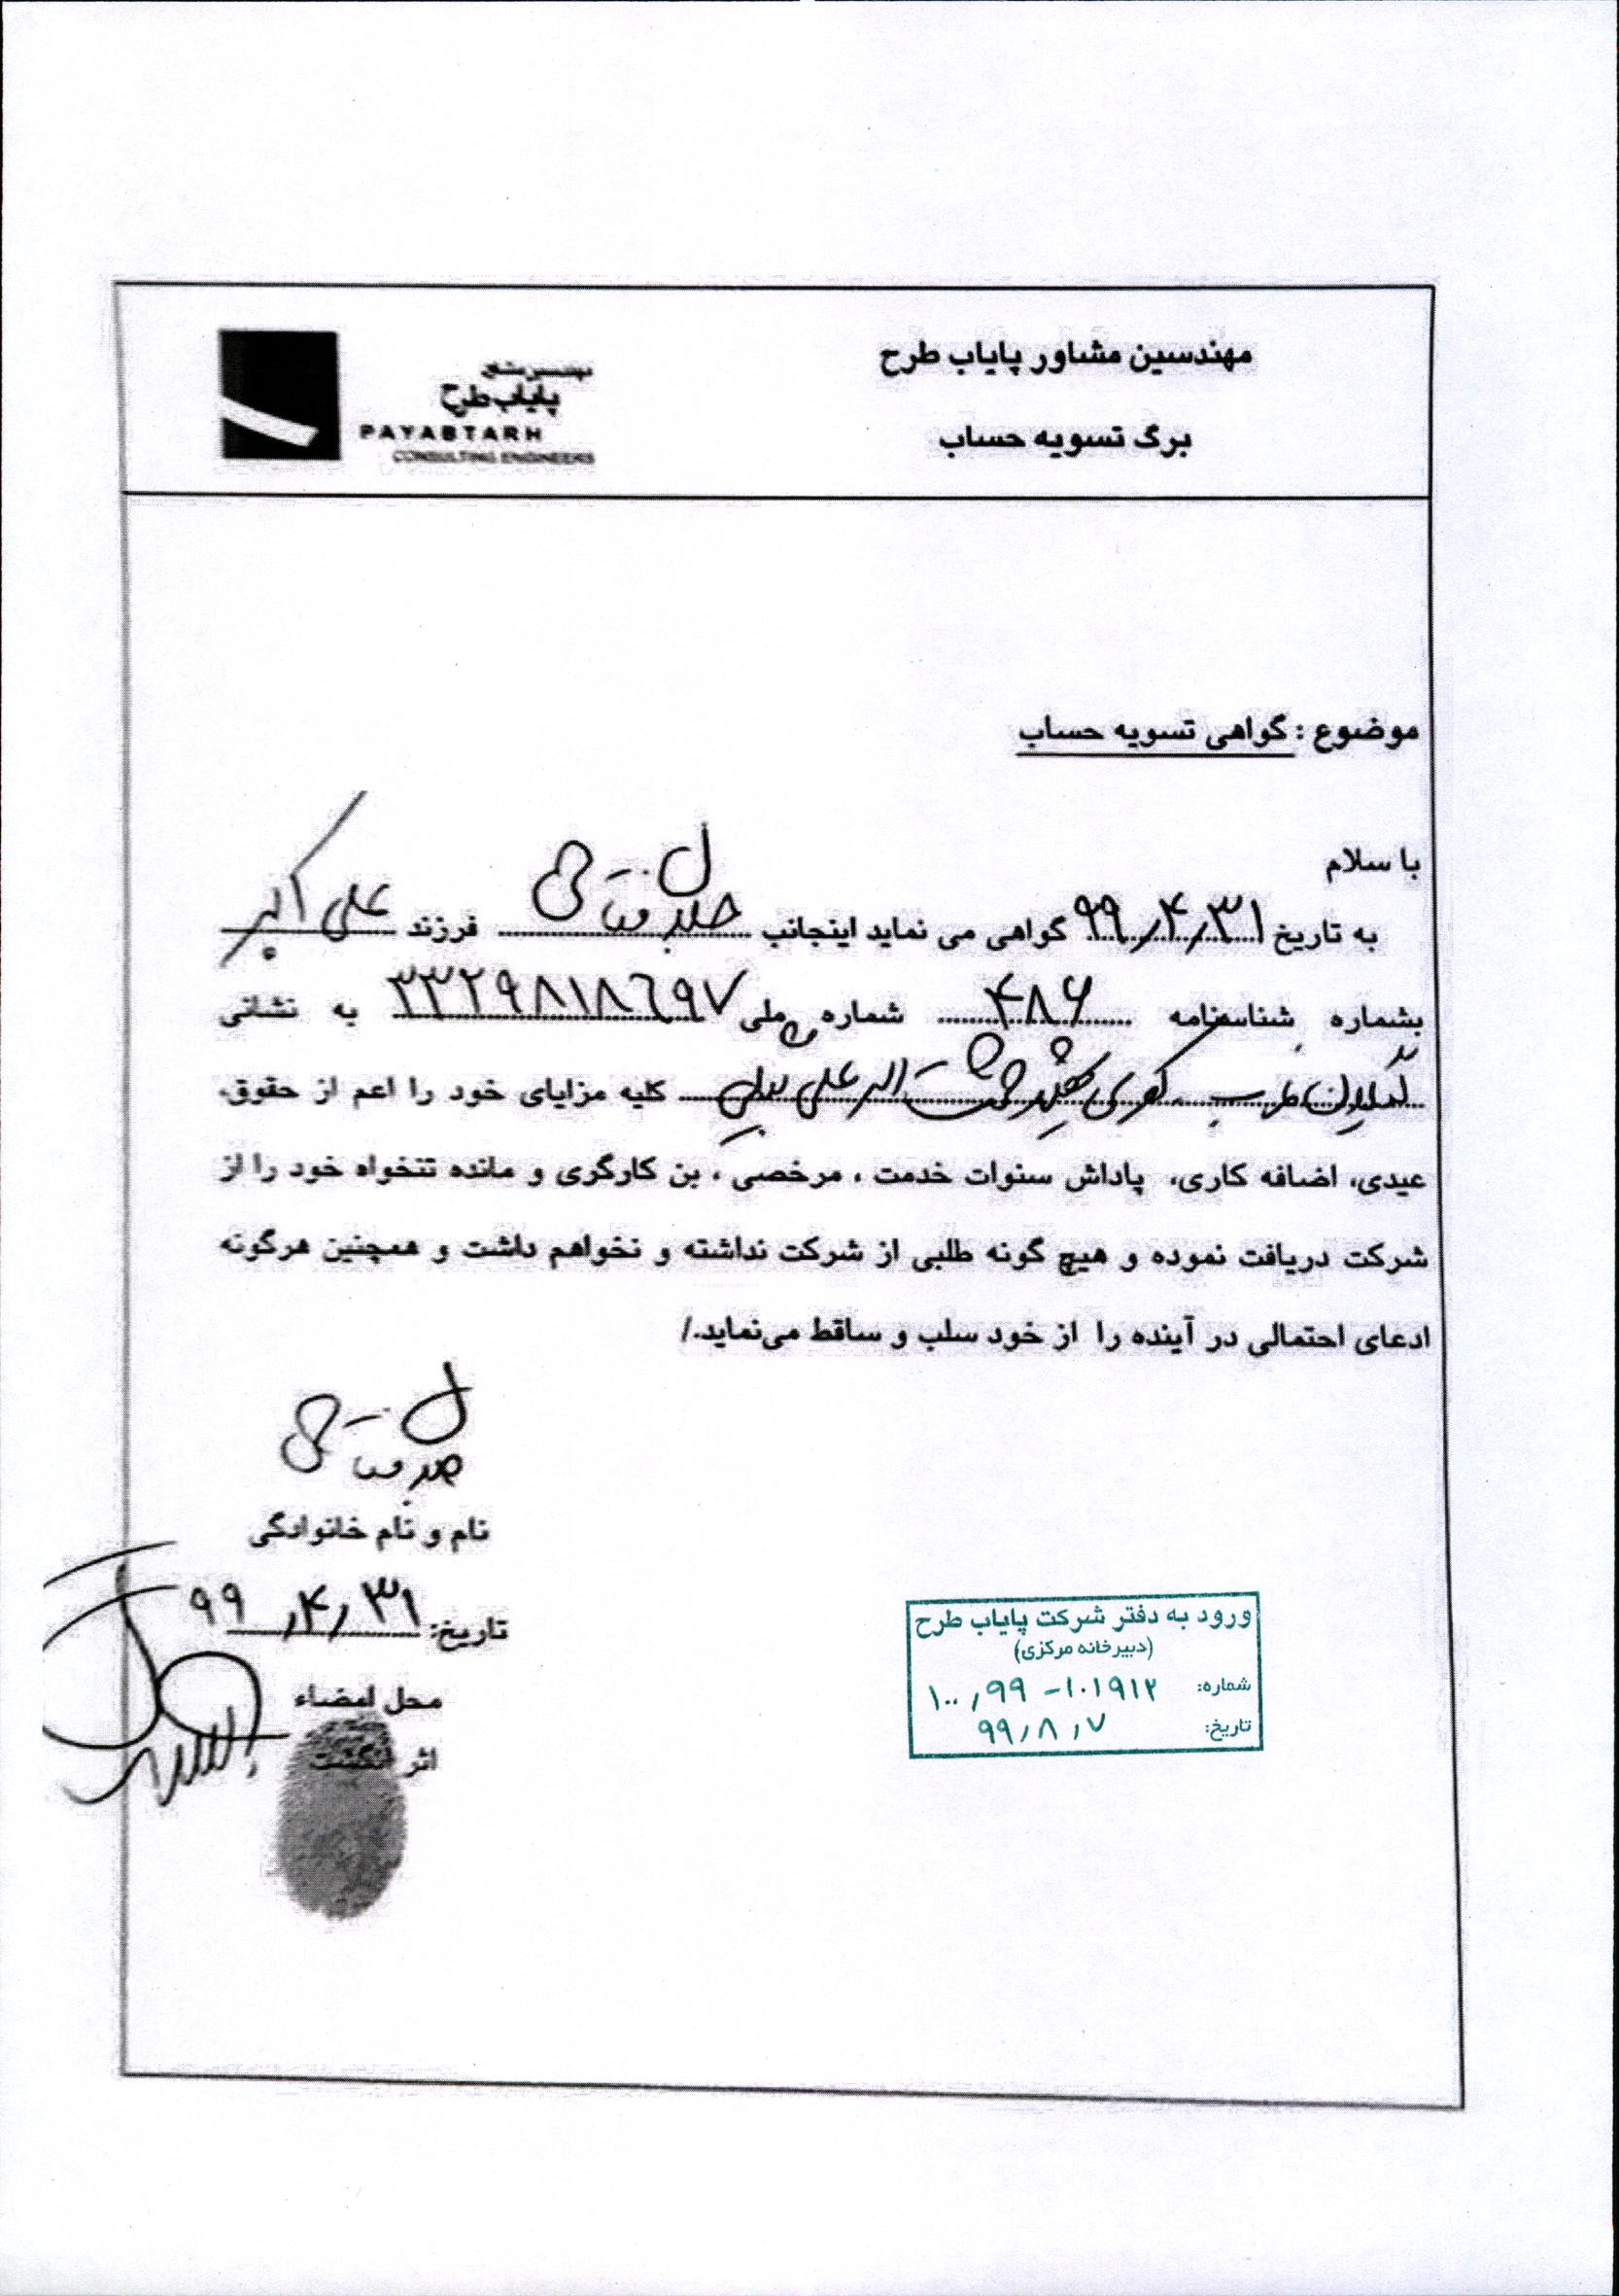 مهندسین مشاور پایاب طرح
برگ تسویه حساب
مهندسین مشاور
پایاب طرح
PAYABTARH
CONSULTING ENGINEERS
موضوع : گواهی تسویه حساب
با سلام
به تاریخ ۹۹٫۴٫۳۱ گواهی می نماید اینجانب فرزند علی اکبر
بشماره شناسنامه ۴۸۶ شماره ملی ۳۳۲۹۸۱۸۶۹۷ به نشانی
کلیه مزایای خود را اعم از حقوق،
عیدی، اضافه کاری، پاداش سنوات خدمت ، مرخصی ، بن کارگری و مانده تنخواه خود را از
شرکت دریافت نموده و هیچ گونه طلبی از شرکت نداشته و نخواهم داشت و همچنین هرگونه
ادعای احتمالی در آینده را از خود سلب و ساقط می‌نماید./
نام و نام خانوادگی
تاریخ: ۹۹٫۴٫۳۱
محل امضاء
اثر انگشت
ورود به دفتر شرکت پایاب طرح
(دبیرخانه مرکزی)
شماره: ۱۰۰٫۹۹-۱۰۱۹۱۲
تاریخ: ۹۹٫۸٫۷